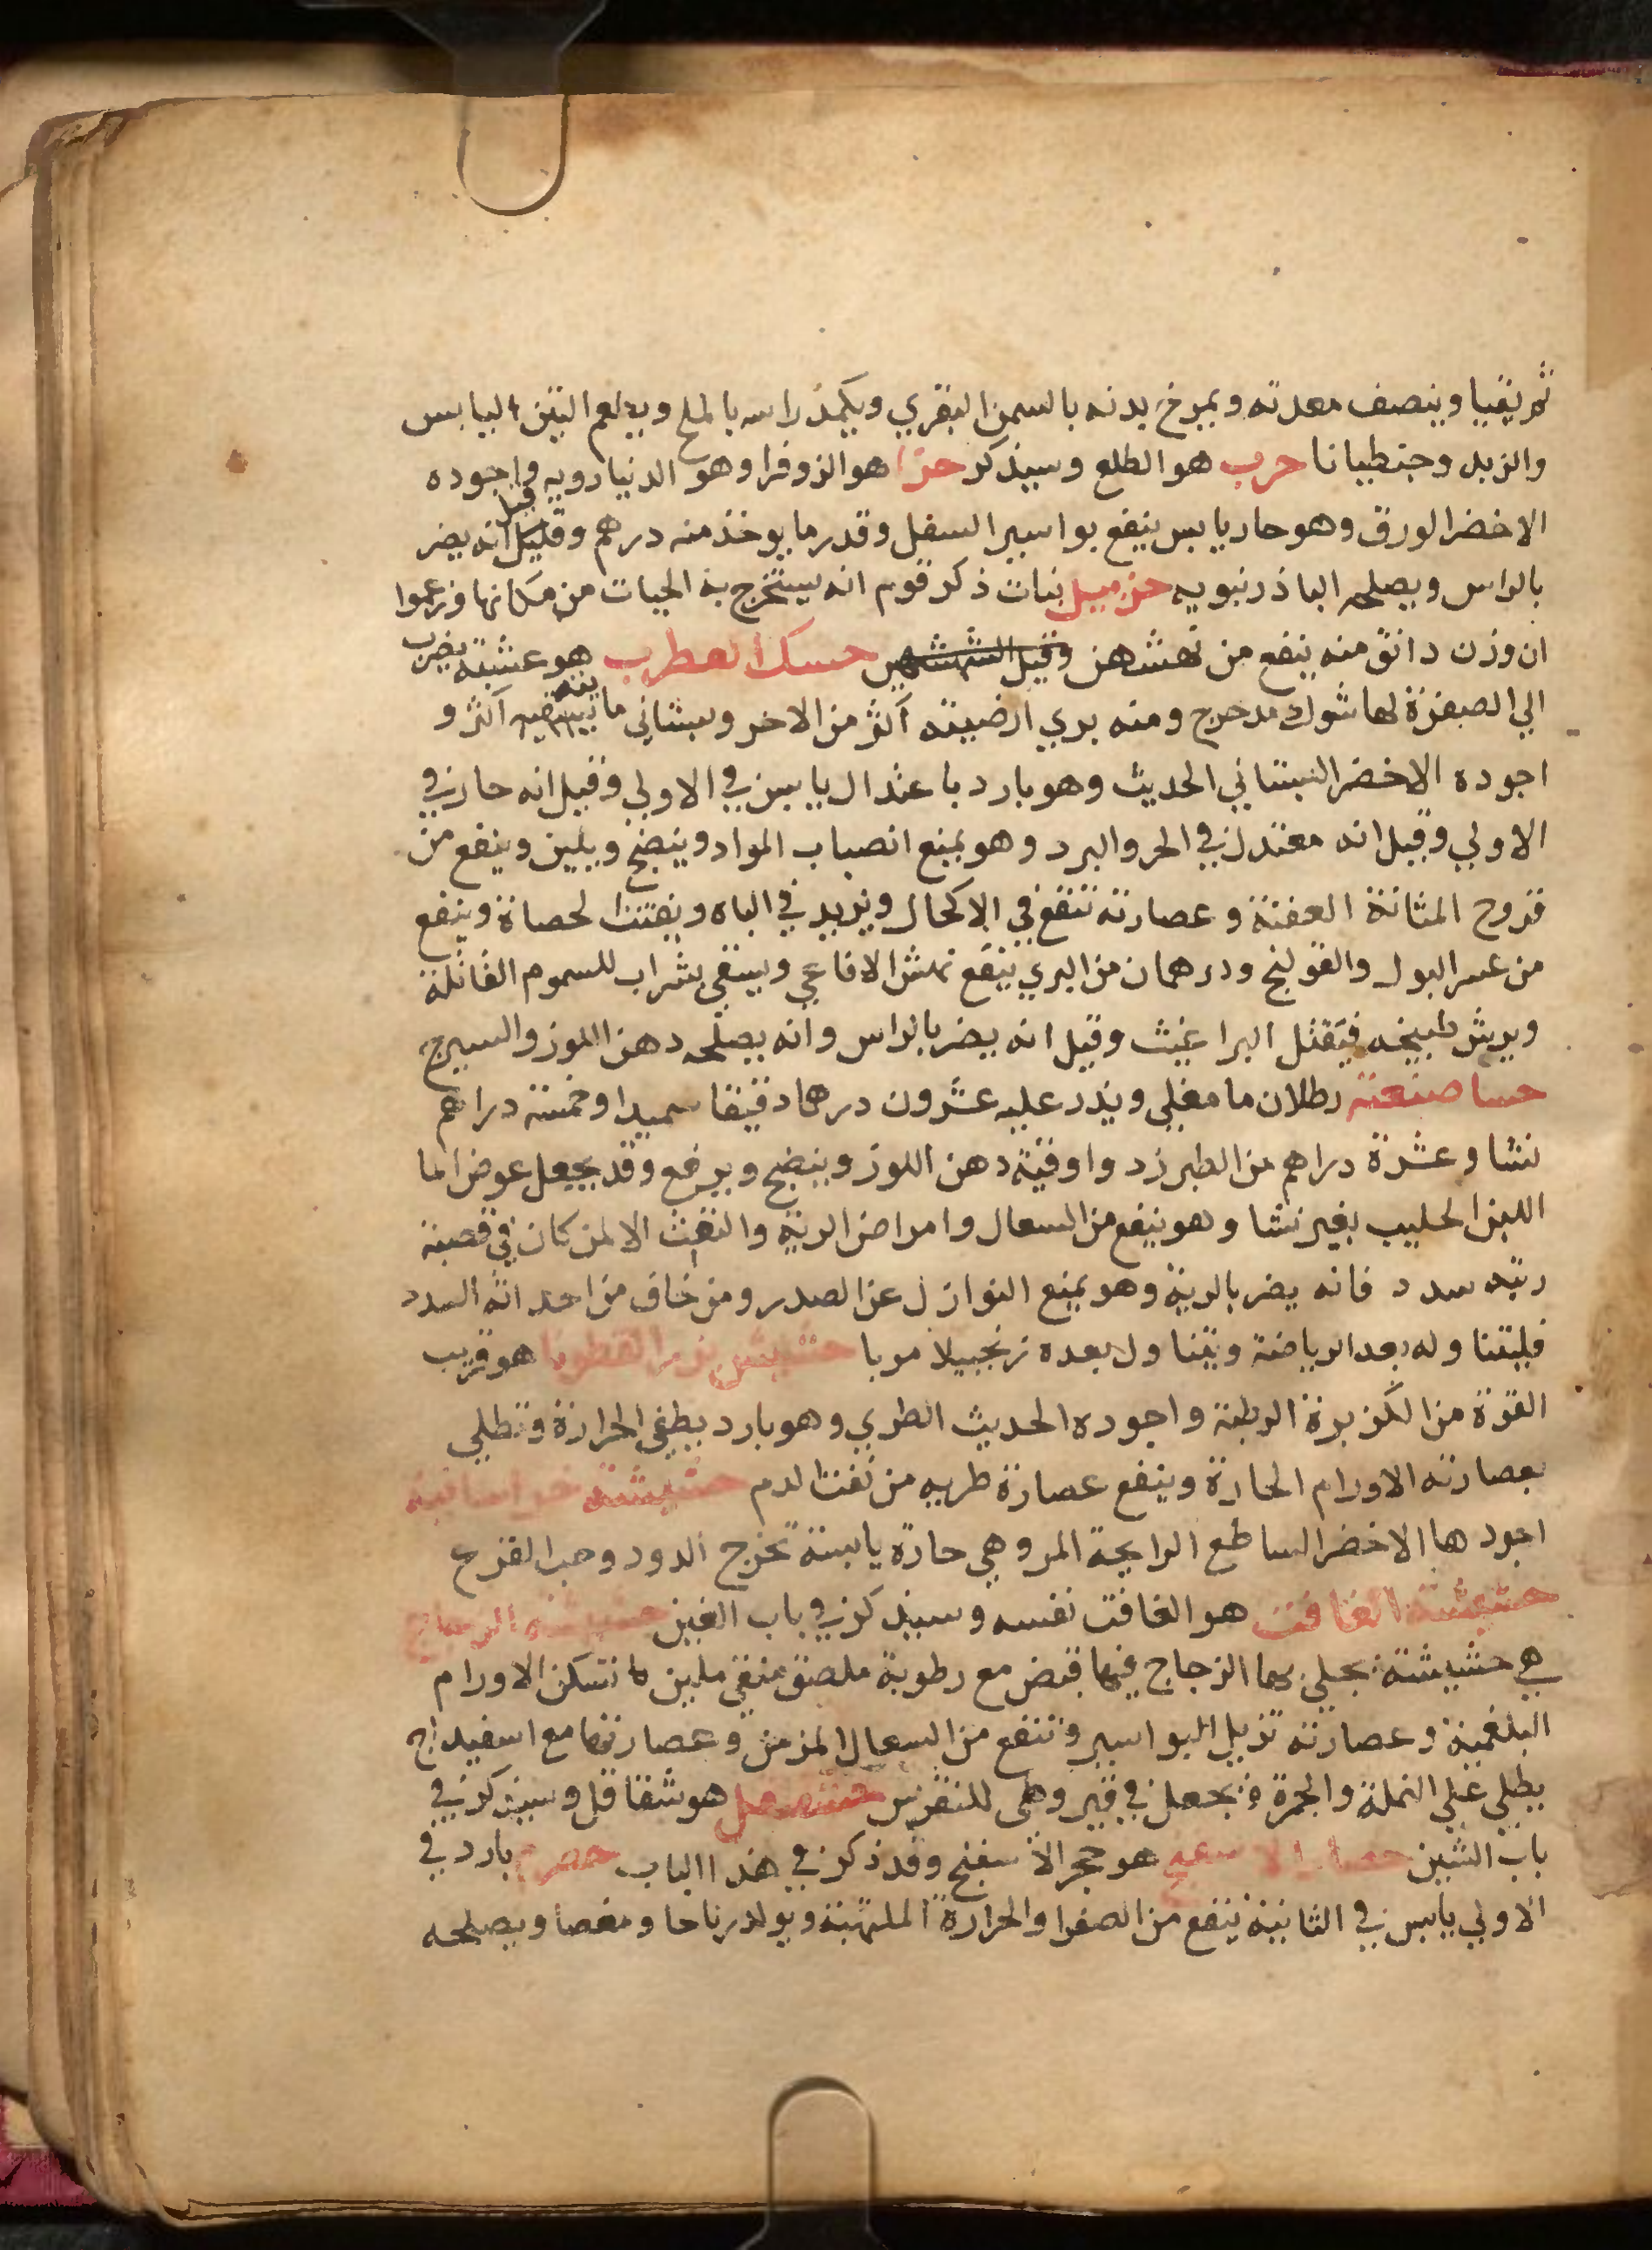 ثم يتقيا وينصف معدته ويمرخ بدنه بالسمن البقري ويكمد راسه بالملح ويطعم التين اليابس
والزبد وجنطيانا حرب هو الطلع وسيذكر حزا هو الزوفرا وهو الدينارويه واجوده
الاخضر الورق وهو حار يابس ينفع بواسير السفل وقدر ما يوخذ منه درهم وقيل انه يضر
بالراس ويصلحه الباذرنبويه حزميل نبات ذكر قوم انه يستخرج به الحيات من مكانها وزعموا
ان وزن دانق منه ينفع من نهشهن وقيل حسك هو عشبة يضرب
الي الصفرة لها شوك مدحرج ومنه بري ارضيته اكثر من الاخر وبستاني مائيته اكثر و
اجوده الاخضر البستاني الحديث وهو بارد باعتدال يابس في الاولي وقيل انه حار في
الاولي وقيل انه معتدل في الحر والبرد وهو يمنع انصباب المواد وينضج ويلين وينفع من
قروح المثانة العفنة وعصارته تنفع في الاكحال ويزيد في الباه ويفتت الحصاة وينفع
من عسر البول والقولنج ودرهمان من البري ينفع نهش الافاعي ويسقي بشراب للسموم القاتلة
ويرش طبيخه فيقتل البراغيث وقيل انه يضر بالراس وانه يصلحه دهن اللوز والسيرج
حسا صنعته رطلان ما مغلي ويذر عليه عشرون درهما دقيقا سميدا وخمسة دراهم
نشا وعشرة دراهم من الطبرزد واوقية دهن اللوز وينضج ويرفع وقد يجعل عوض الما
اللبن الحليب بغير نشا وهو ينفع من السعال وامراض الرية والنفث الا لمن كان في قصبة
ريته سدد فانه يضر بالرية وهو يمنع النوازل عن الصدر ومن خاف من احداثه السدد
فليتناوله بعد الرياضة ويتناول بعده زنجبيلا مربا حشيش بزر القطونا هو قريب
القوة من الكزبرة الرطبة واجوده الحديث الطري وهو بارد يطفي الحرارة وتطلي
بعصارته الاورام الحارة وينفع عصارة طريه من نفث الدم حشيشة خراسانية
اجودها الاخضر الساطع الرايحة المر وهي حارة يابسة تخرج الدود وحب القرع
حشيشة الغافت هو الغافت نفسه وسيذكر في باب الغين حشيشة الزجاج
هي حشيشة يجلي بها الزجاج فيها قبض مع رطوبة ملصق منقي ملين تسكن الاورام
البلغمية وعصارته تزيل البواسير وتنفع من السعال المزمن وعصارتها مع اسفيداج
يطلي علي النملة والجمرة ويجعل في قيروطي للنقرس هو شقاقل وسيذكر في
باب الشين هو حجر الاسفنج وقد ذكر في هذا الباب حصرم بارد في
الاولي يابس في الثانية ينفع من الصفرا والحرارة الملتهبة ويولد رياحا ومغصا ويصلحه